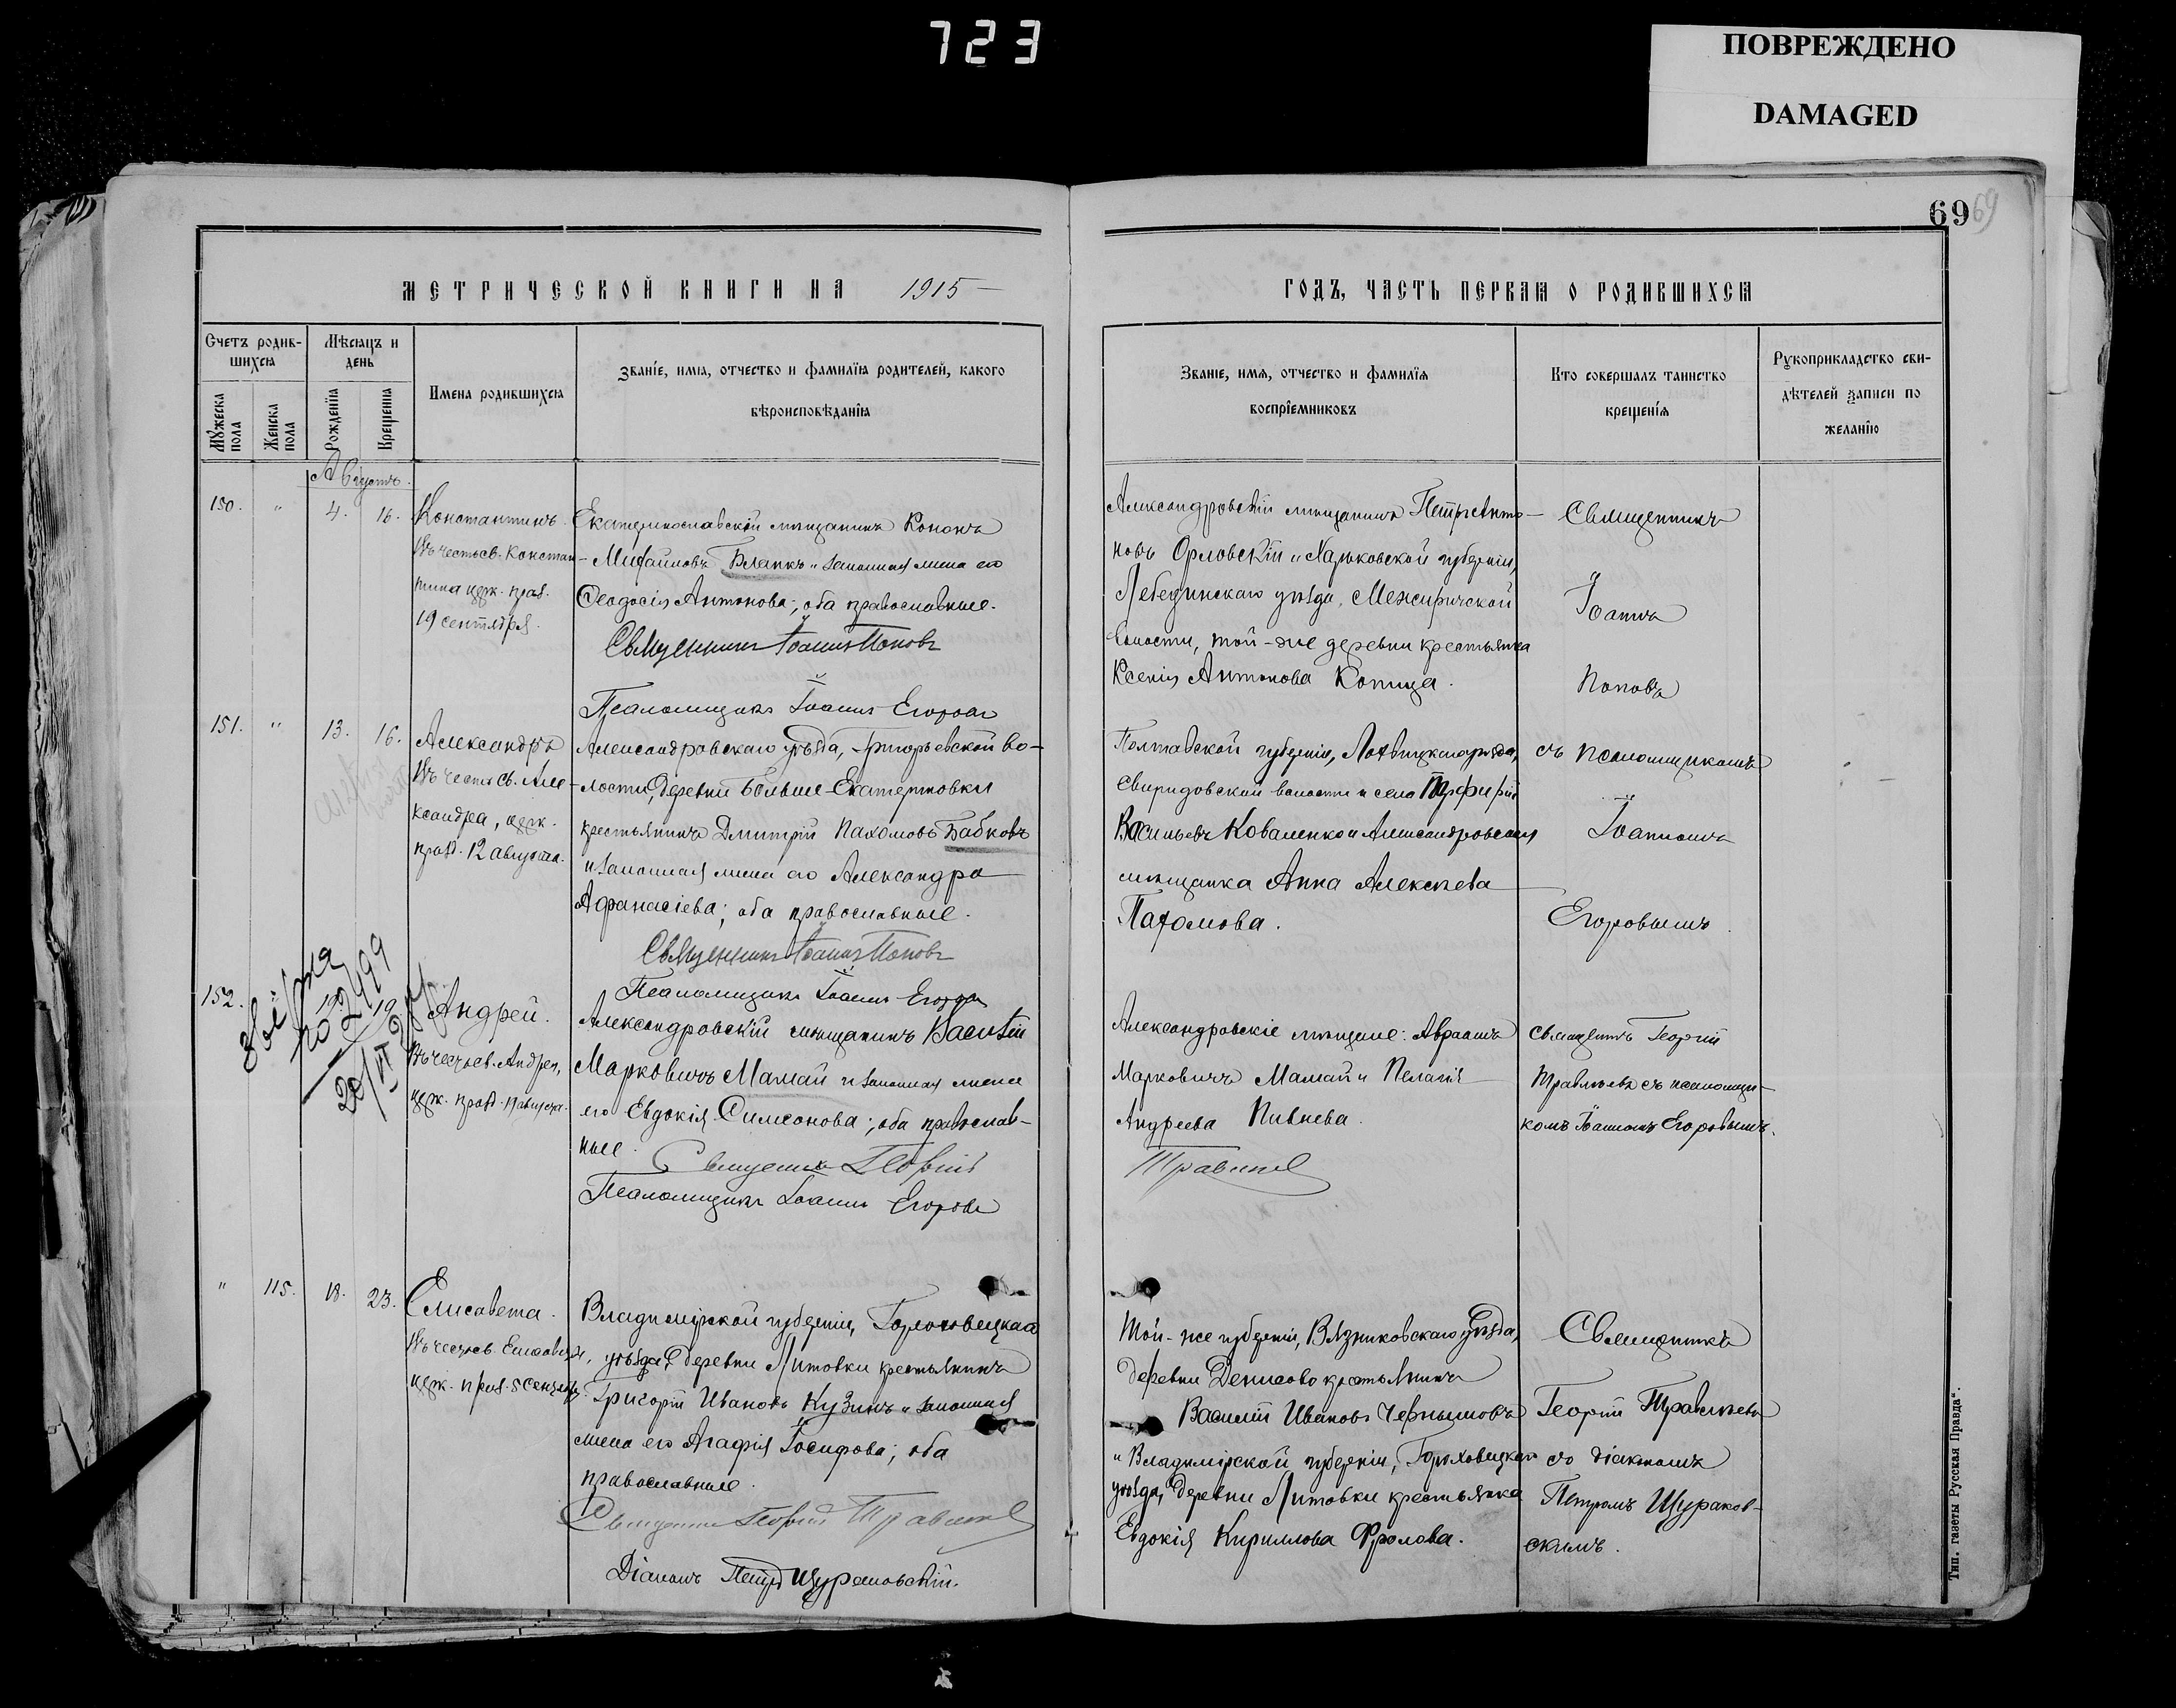 723
ПОВРЕЖДЕНО
DAMAGED
69 69
МЕТРИЧЕСКОЙ КНИГИ НА 1915
ГОДЪ, ЧАСТЬ ПЕРВАЯ О РОДИВШИХСЯ
Счетъ родив-
шихся
Мужеска пола
Женска пола
Мѣсяцъ и
день
Рожденїя
Крещенїя
Имена родившихся
Званїе, имя, отчество и фамилїя родителей, какого
вѣроисповѣданїя
Званїе, имя, отчество и фамилїя
воспрїемниковъ
Кто совершалъ таинство
крещенїя
Рукоприкладство сви-
дѣтелей записи по
желанїю
Августъ.
150. " 4. 16.
Константинъ.
Въ честь св. Констан-
тина церк. празд.
19 сентября.
Екатеринославскій мѣщанинъ Кононъ
Михайловъ Бланкъ и законная жена его
Ѳеодосія Антонова; оба православные.
Священникъ Іоаннъ Поповъ
Псаломщикъ Іоаннъ Егоровъ
Александровскій мѣщанинъ Петръ Анто-
новъ Орловскій и Харьковской губерніи,
Лебединскаго уѣзда, Межиричской
волости, той-же деревни крестьянка
Ксенія Антонова Копица.
Священникъ
Іоаннъ
Поповъ
151. " 13. 16.
Александръ
Въ честь св. Але-
ксандра, церк.
празд. 12 августа.
Александровскаго уѣзда, Григорьевской во-
лости, деревни Больше-Екатериновки
крестьянинъ Дмитрій Пахомовъ Бабковъ
и законная жена его Александра
Афанасіева; оба православные.
Священникъ Іоаннъ Поповъ
Псаломщикъ Іоаннъ Егоровъ
Полтавской губерніи, Лохвицкаго уѣзда,
Свиридовской волости и села Порфирій
Васильевъ Коваленко и Александровская
мѣщанка Анна Алексѣева
Пахомова.
съ псаломщикомъ
Іоанномъ
Егоровымъ.
152. 19
Андрей.
Въ честь св. Андрея,
церк. празд. 19 августа.
Александровскій мѣщанинъ Василій
Марковичъ Мамай и законная жена
его Евдокія Симеонова; оба православ-
ные.
Священникъ Георгій
Травкинъ
Псаломщикъ Іоаннъ Егоровъ
Александровскіе мѣщане: Авраамъ
Марковичъ Мамай и Пелагія
Андреева Пивнева.
Священникъ Георгій
съ псаломщи-
комъ Іоанномъ Егоровымъ.
" 115. 18. 23.
Елисавета.
Въ честь св. Елисаветы,
церк. празд. 5 сентяб.
Владимірской губерніи, Гороховецкаго
уѣзда, деревни Литовки крестьянинъ
Григорій Ивановъ Кузинъ и законная
жена его Агафія Іосифова; оба
православные.
Священникъ Георгій
Діаконъ Петръ Щураковскій.
Той-же губерніи, Вязниковскаго уѣзда,
деревни Денисово крестьянинъ
Василій Ивановъ Чернышовъ
и Владимірской губерніи, Гороховецкаго
уѣзда, деревни Литовки крестьянка
Евдокія Кириллова Фролова.
Священникъ
Георгій
съ діакономъ
Петромъ Щураков-
скимъ.
Тип. газеты „Русская Правда".